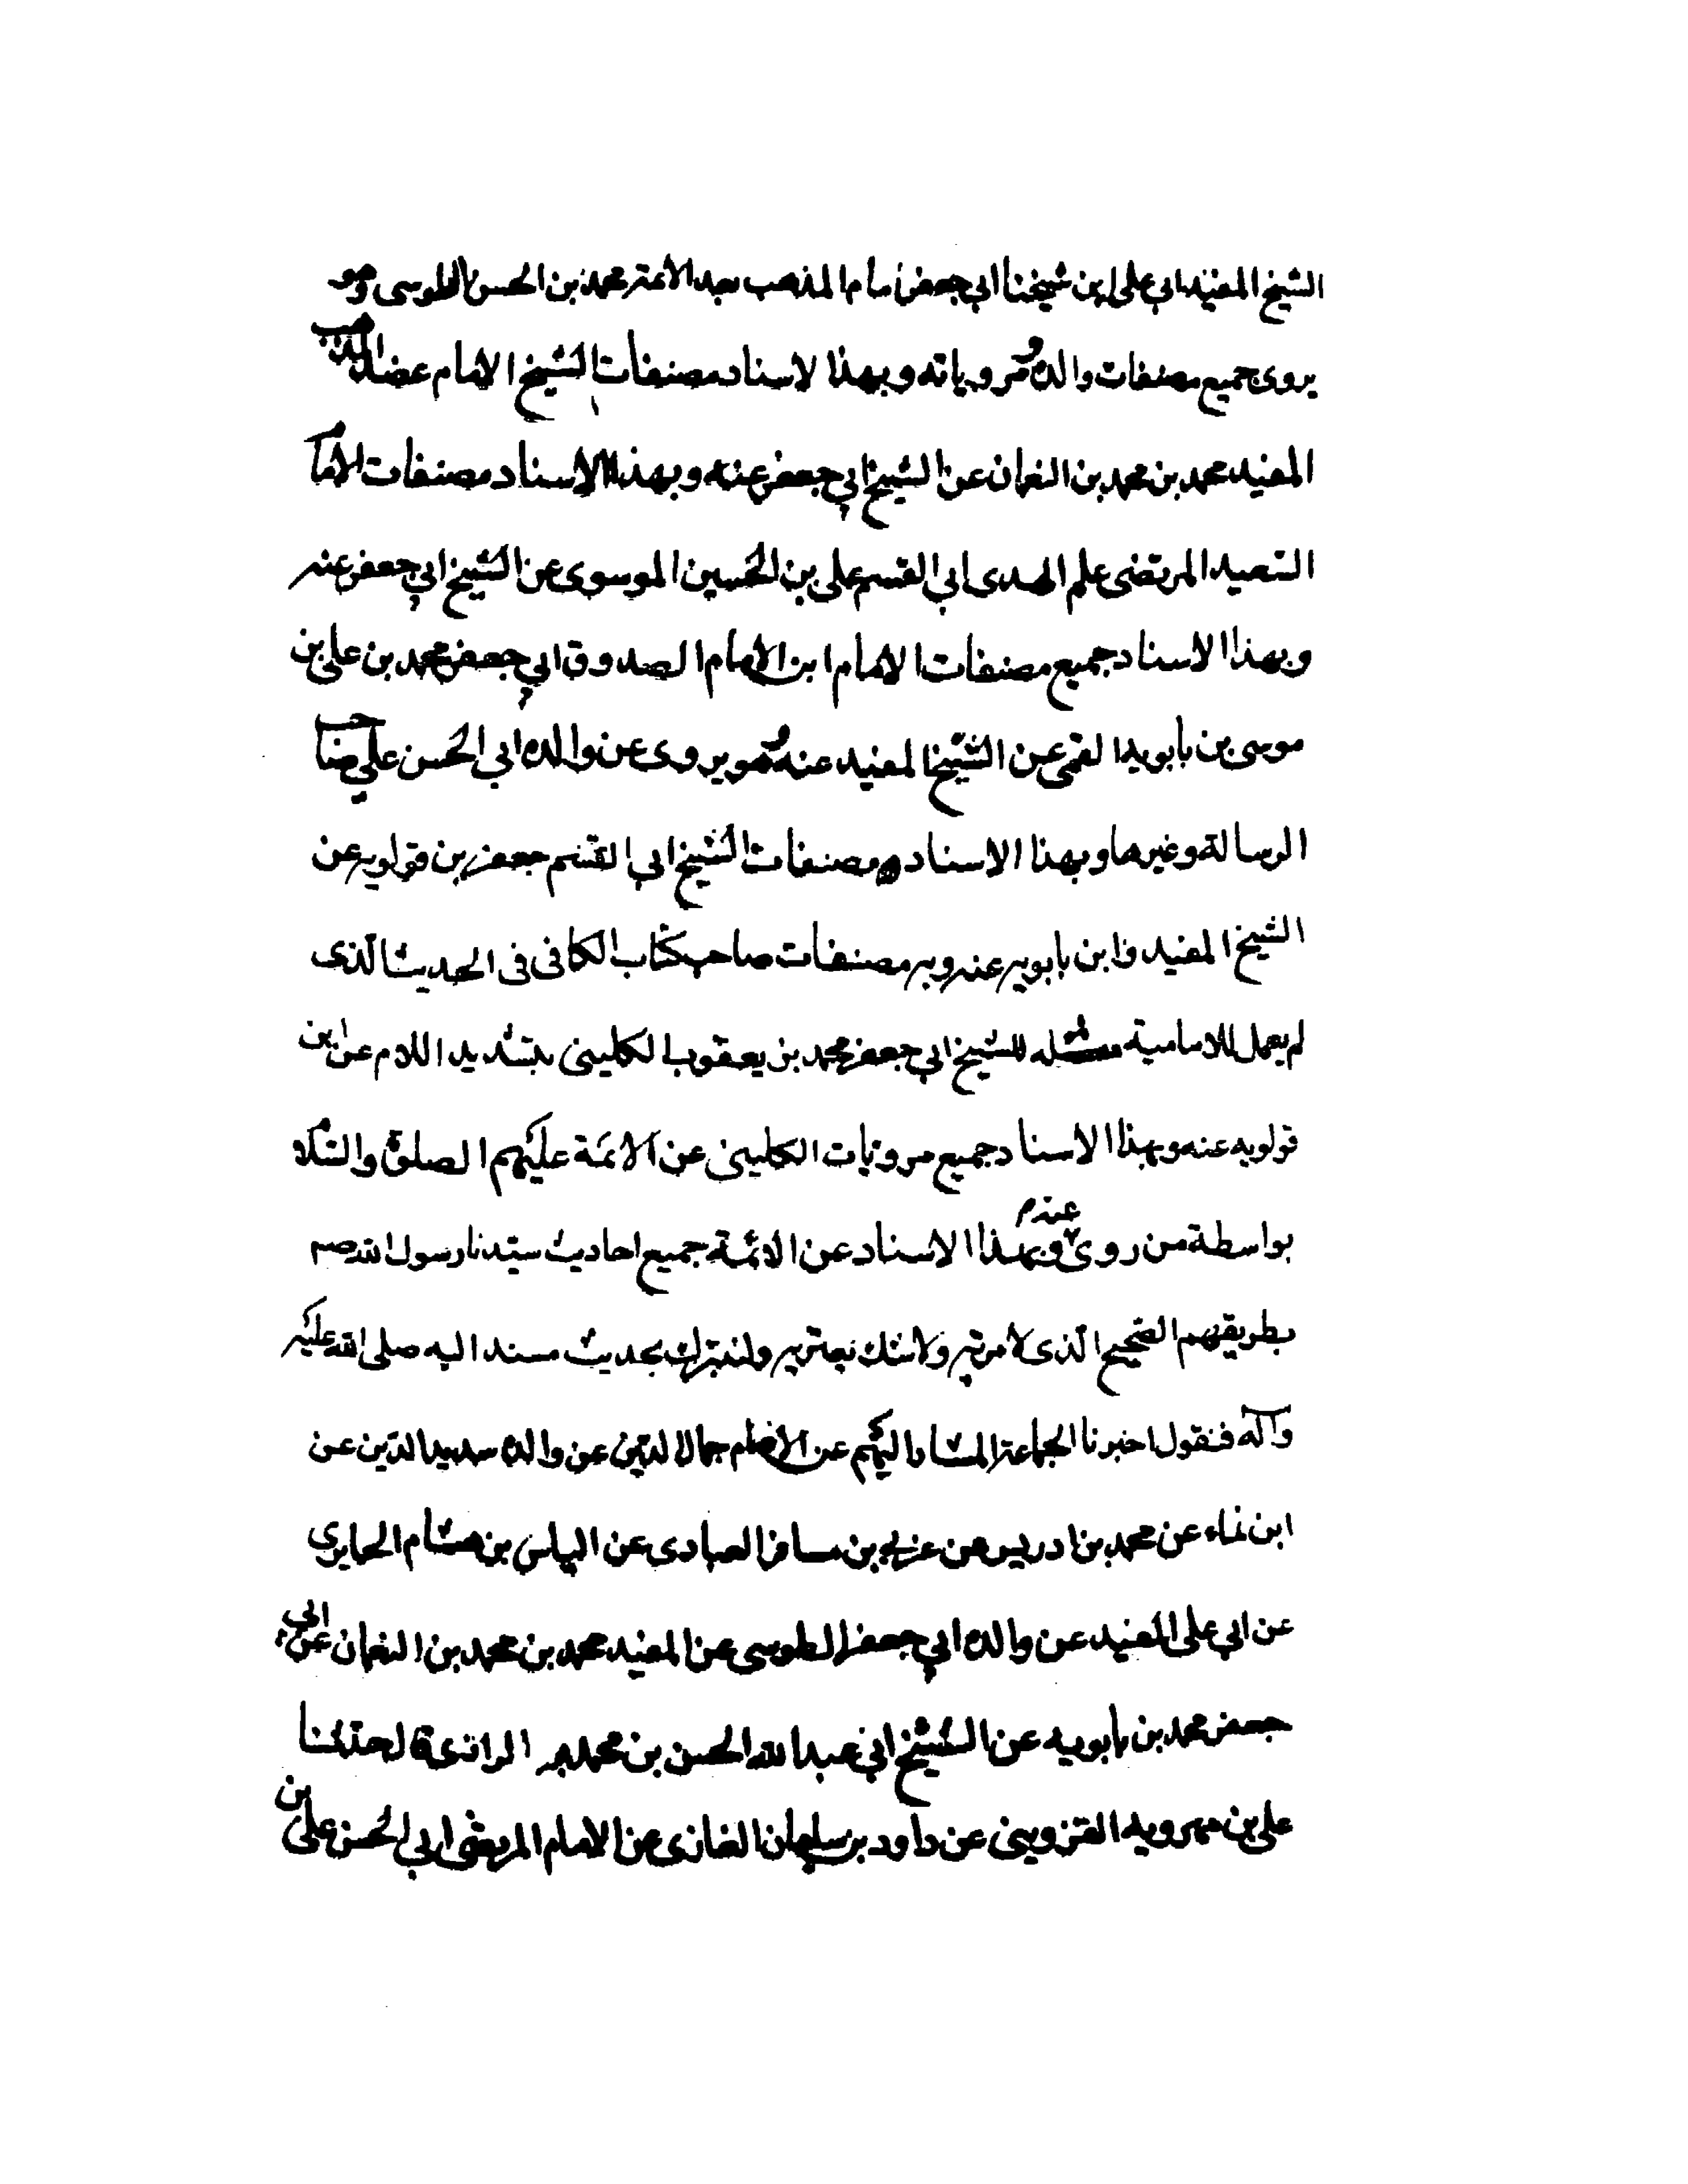 الشيخ المفيد ابي على ابن شيخنا ابي جعفر امام المذهب بعد الائمة محمد بن الحسن الطوسى وهو
يروى جميع مصنفات والده ومروياته وبهذا لاسناد مصنفات الشيخ الامام عضد المذهب
المفيد محمد بن محمد بن النعمان عن الشيخ ابي جعفر عنه وبهذا الاسناد مصنفات الامام
السعيد المرتضى علم الهدى ابي القسم على بن الحسين الموسوى عن الشيخ ابي جعفر عنه
وبهذا الاسناد جميع مصنفات الامام ابن الامام الصدوق ابي جعفر محمد بن على بن
موسى بن بابويه القمى عن الشيخ المفيد عنه وهو يروى عن والده ابي الحسن على صاحب
الرسالة وغيرها وبهذا الاسناد مصنفات الشيخ ابي القسم جعفر بن قولويه عن
الشيخ المفيد وابن بابويه عنه وبه مصنفات صاحب كتاب الكافى فى الحديث الذى
لم يعمل للامامية مثله للشيخ ابي جعفر محمد بن يعقوب الكلينى بتشديد اللام عن ابن
قولويه عنه وبهذا الاسناد جميع مرويات الكلينى عن الائمة عليهم الصلوة والسلام
بواسطة من روى عنهم وبهذا الاسناد عن الائمة جميع احاديث سيدنا رسول الله صم
بطريقهم الصحيح الذى لا مرية ولا شك يعتريه ولنتبرك بحديث مسند اليه صلى الله عليه
وآله فنقول اخبرنا الجماعة المشار اليهم عن الامام جمال الدين عن والده سديد الدين عن
ابن نماء عن محمد بن ادريس عن عربي بن مسافر العبادى عن الياس بن هشام الحايرى
عن ابي على المفيد عن والده ابي جعفر الطوسى عن المفيد محمد بن محمد بن النعمان عن ابي
جعفر محمد بن بابويه عن الشيخ ابي عبد الله الحسن بن محمد الرازى قال حدثنا
على بن مهرويه القزوينى عن داود بن سليمان الغازى عن الامام المرتضى ابي الحسن على بن